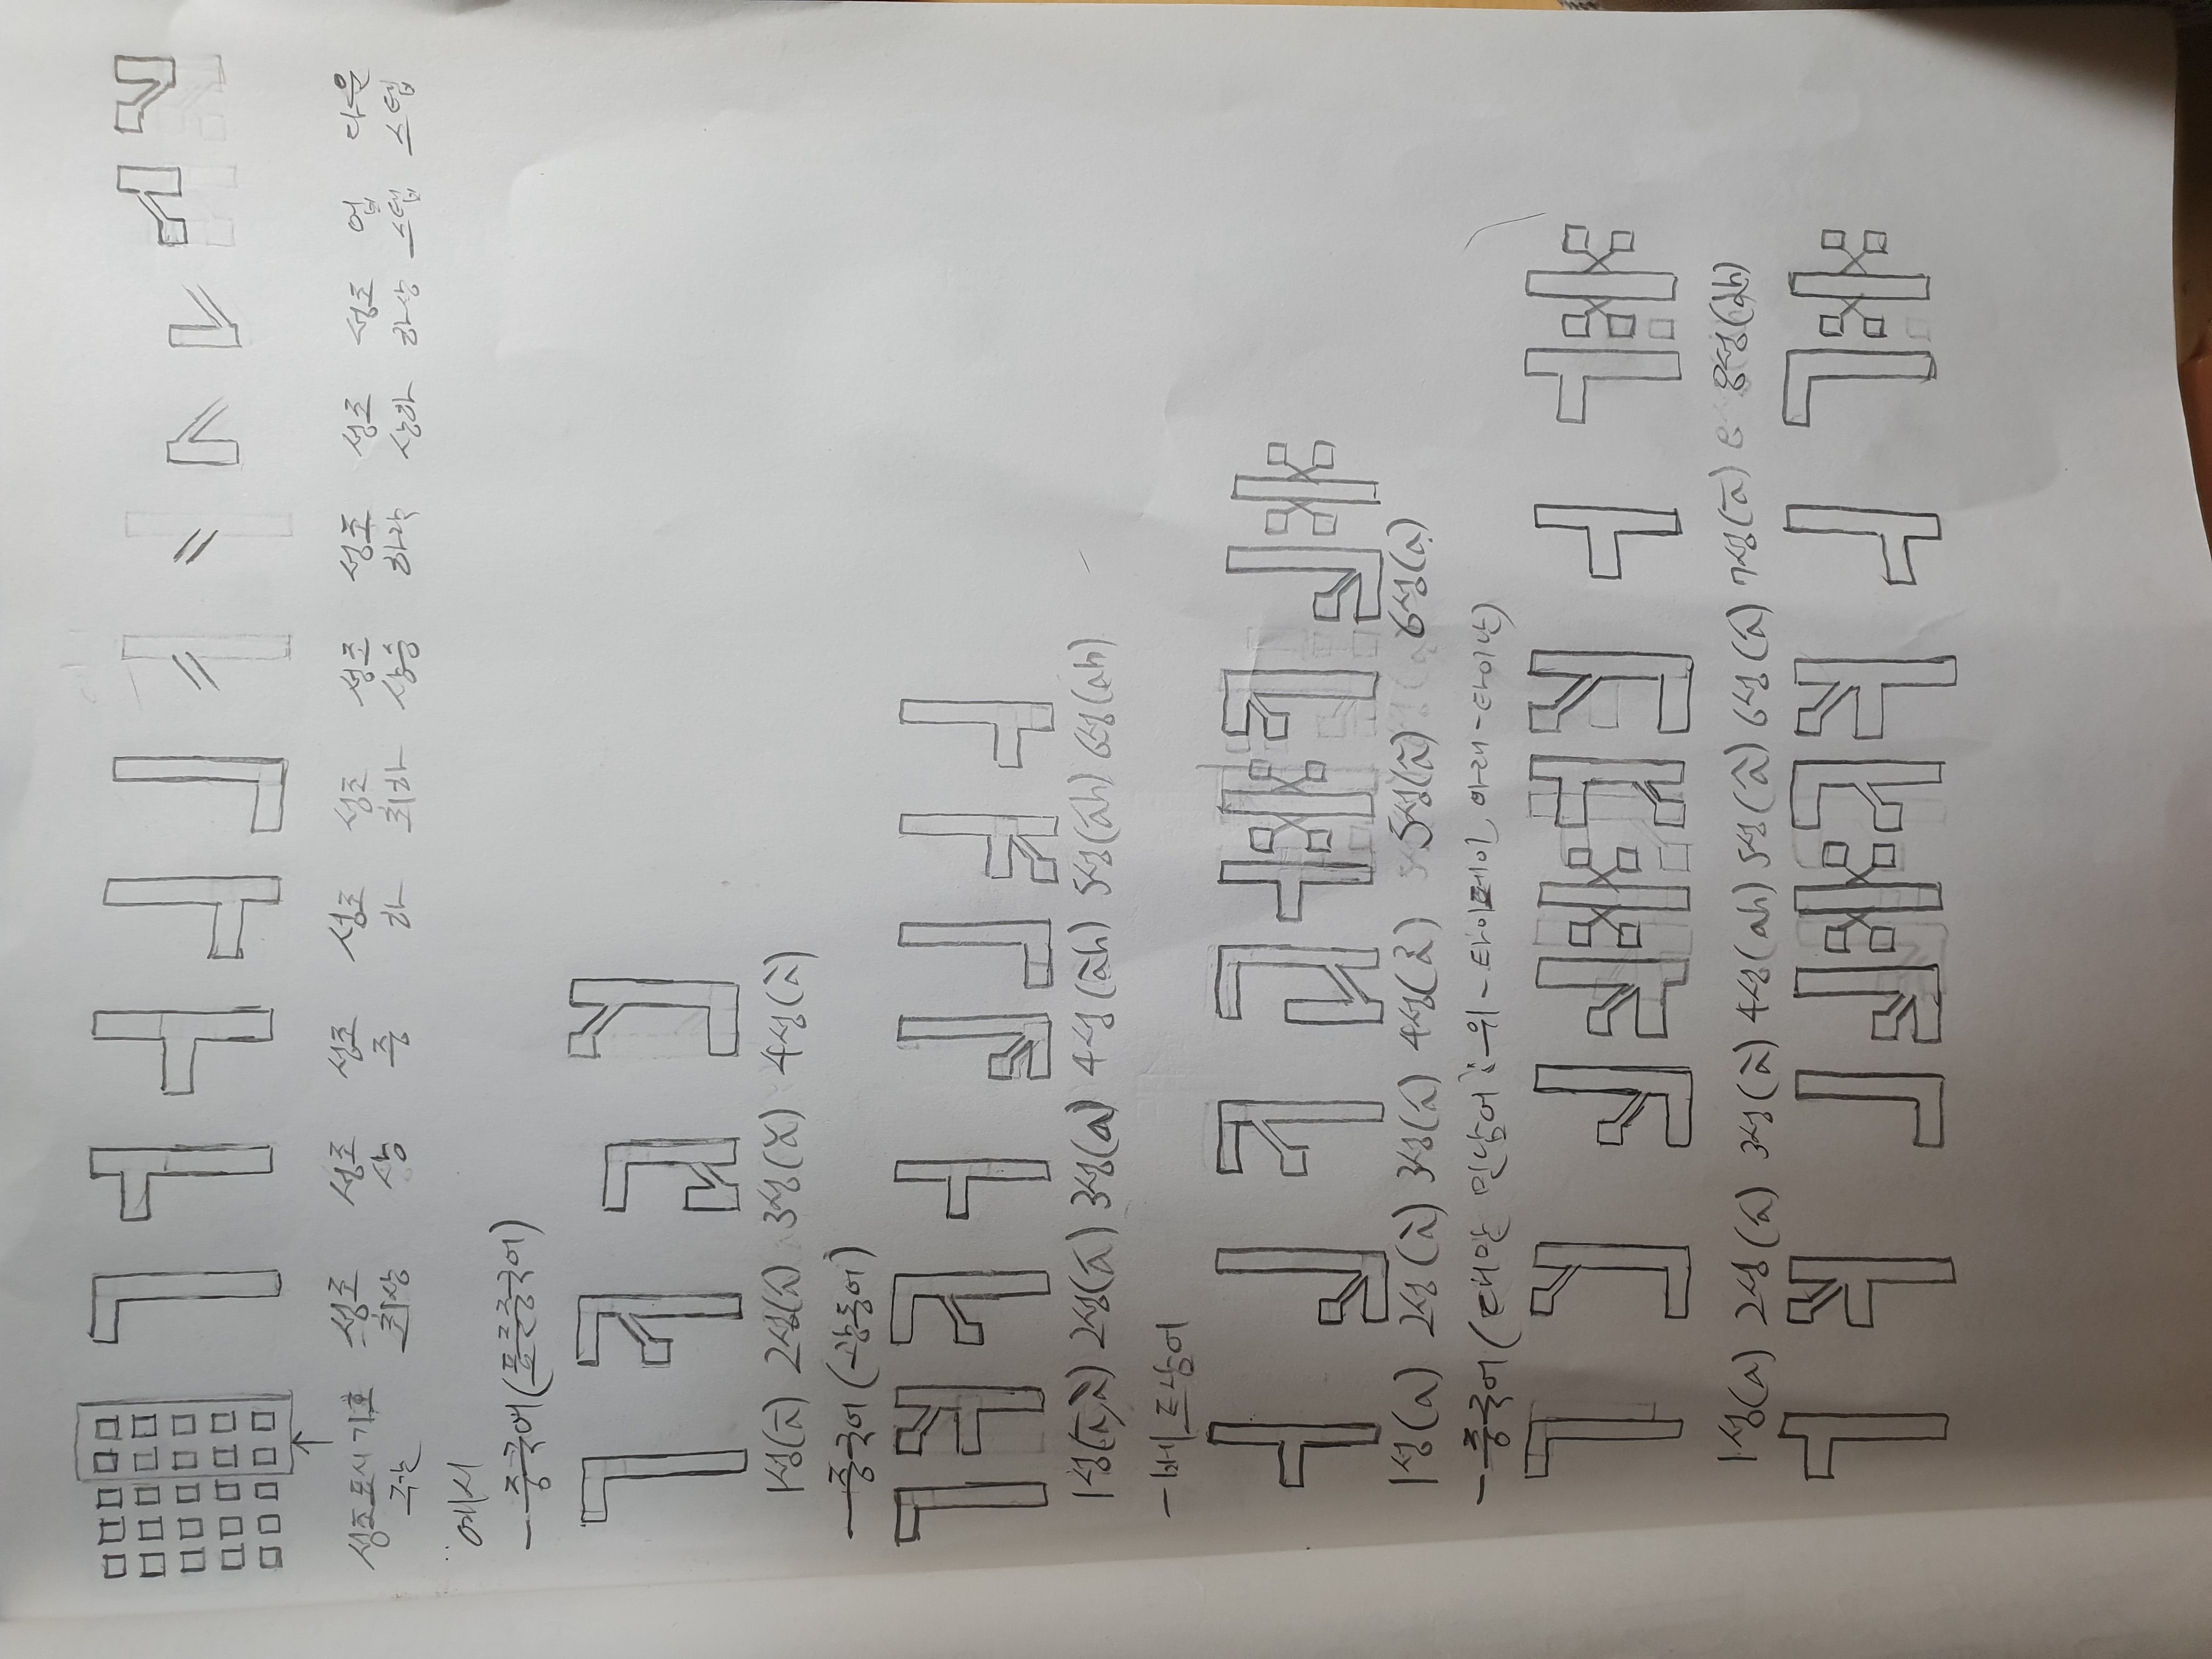 성조표시기호 성조 성조 성조 성조 성조 성조 성조 성조 성조 업 다운
구간 최상 상 중 하 최하 상승 하락 상하 하상 스텝 스텝
예시
-중국어(표준중국어)
1성(ā) 2성(á) 3성(ǎ) 4성(à)
-중국어(광동어)
1성(ā,à) 2성(á) 3성(a) 4성(àh) 5성(áh) 6성(ah)
-베트남어
1성(a) 2성(à) 3성(á) 4성(ả) 5성(ã) 6성(ạ)
-중국어(대만 민남어: 위-타이페이, 아래-타이난)
1성(a) 2성(á) 3성(à) 4성(ah) 5성(â) 6성(á) 7성(ā) 8성(a̍h)